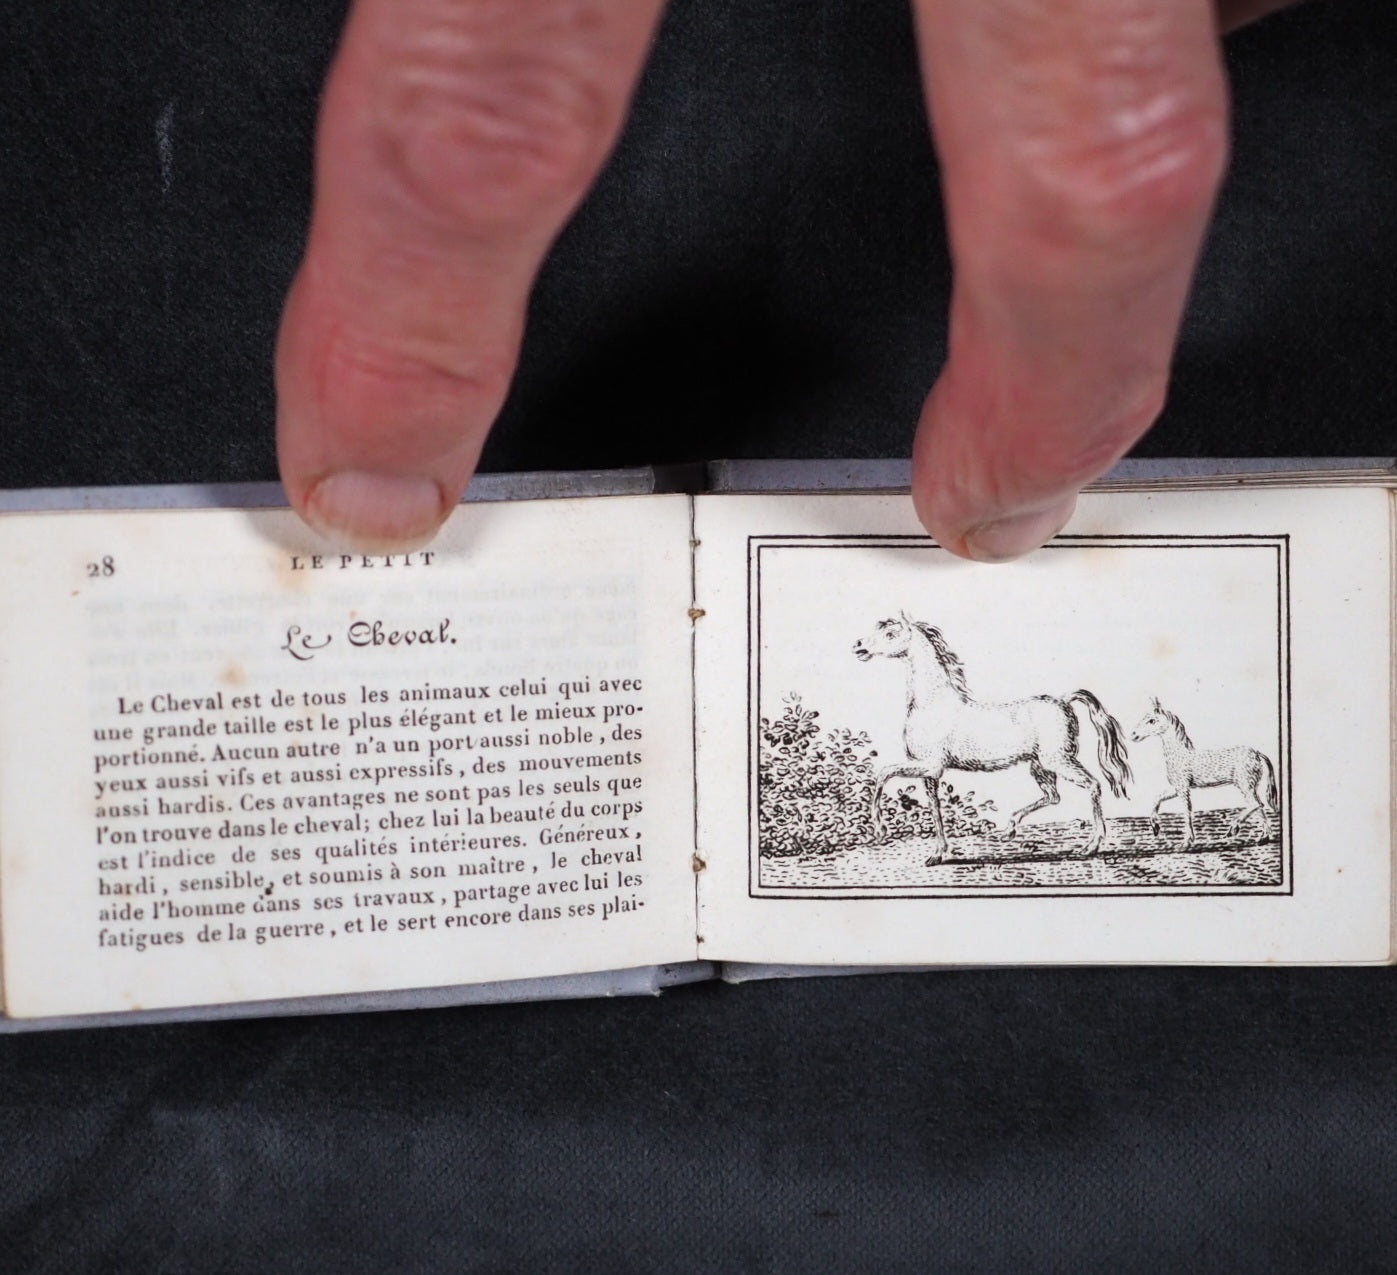 28
LE PETIT
Le Cheval.
Le Cheval est de tous les animaux celui qui avec
une grande taille est le plus élégant et le mieux pro-
portionné. Aucun autre n'a un port aussi noble, des
yeux aussi vifs et aussi expressifs, des mouvements
aussi hardis. Ces avantages ne sont pas les seuls que
l'on trouve dans le cheval; chez lui la beauté du corps
est l'indice de ses qualités intérieures. Généreux,
hardi, sensible, et soumis à son maître, le cheval
aide l'homme dans ses travaux, partage avec lui les
fatigues de la guerre, et le sert encore dans ses plai-